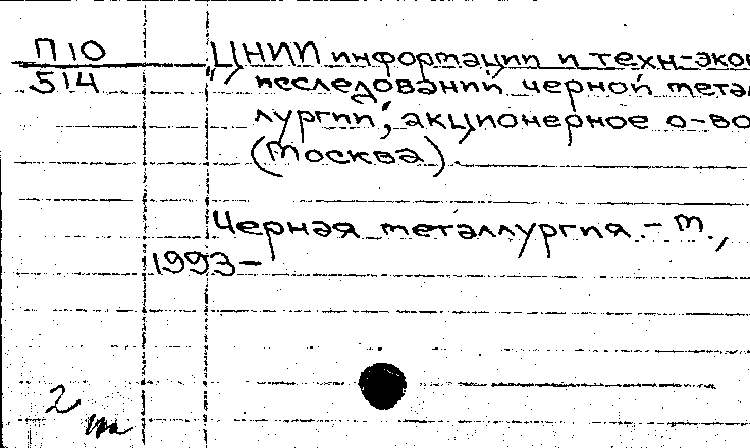 П10
514
"ЦНИИ информации и техн-экон
исследований черной метал
лургии", акционерное о-во
(Москва).
Черная металлургия. - М.,
1993-
2